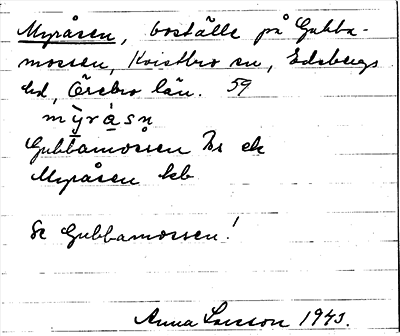 Myråsen, boställe på Gubba-
mossen, Kvistbro sn, Edsbergs
hd, Örebro län. 59
mỳråsn
Gubbamossen Br ek
Myråsen kb
Se Gubbamossen!
Anna Larsson 1943.